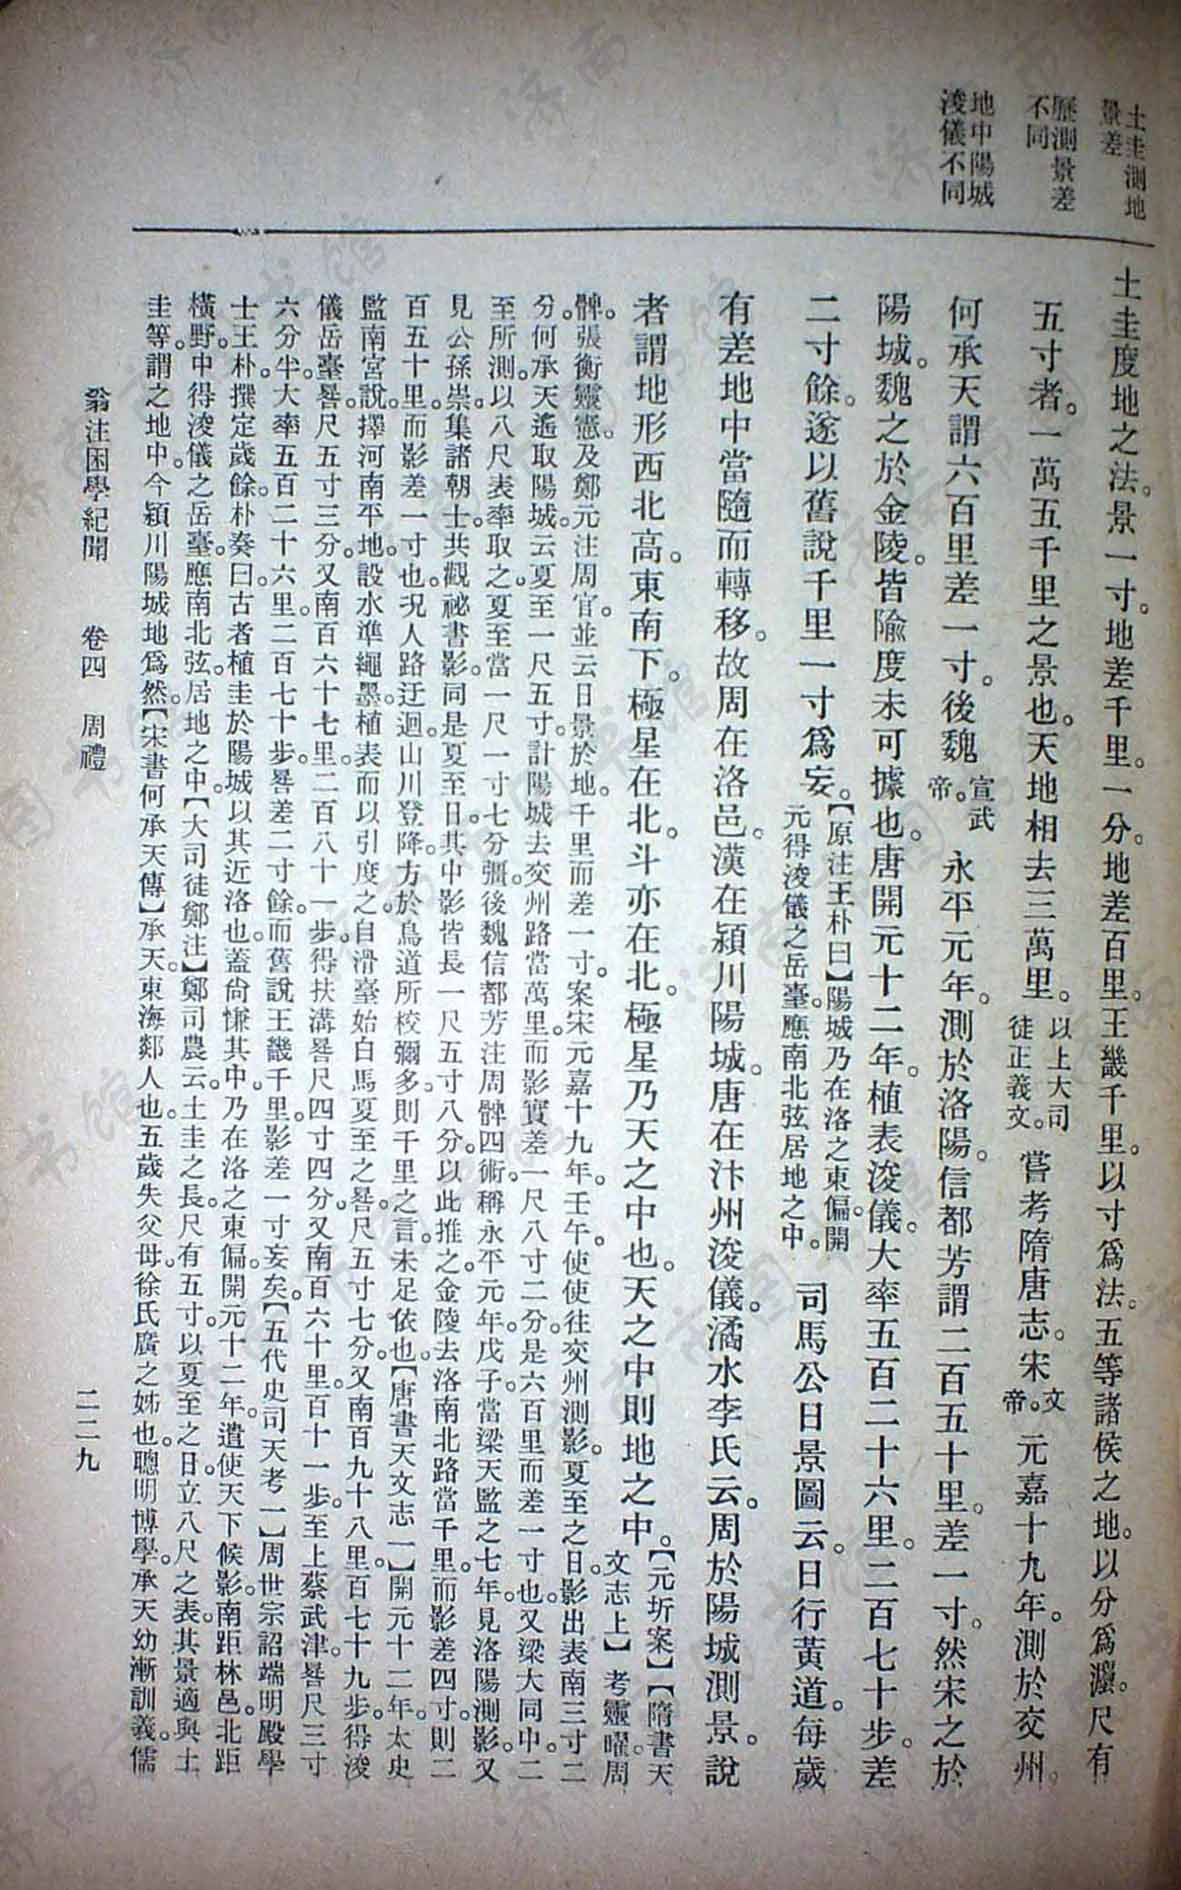 土圭測地
景差
歷測景差
不同
地中陽城
浚儀不同
土圭度地之法。景一寸。地差千里。一分。地差百里。王畿千里。以寸爲法。五等諸侯之地。以分爲灋。尺有
五寸者。一萬五千里之景也。天地相去三萬里。以上大司徒正義文。嘗考隋唐志。宋文帝。元嘉十九年。測於交州。
何承天謂六百里差一寸。後魏宣武帝。永平元年。測於洛陽。信都芳謂二百五十里。差一寸。然宋之於
陽城。魏之於金陵。皆隃度未可據也。唐開元十二年。植表浚儀。大率五百二十六里。二百七十步。差
二寸餘。遂以舊說千里一寸爲妄。【原注王朴曰】陽城乃在洛之東偏。開元得浚儀之岳臺。應南北弦居地之中。司馬公日景圖云。日行黃道。每歲
有差。地中當隨而轉移。故周在洛邑。漢在潁川陽城。唐在汴州浚儀。潏水李氏云。周於陽城測景。說
者謂地形西北高。東南下。極星在北。斗亦在北。極星乃天之中也。天之中則地之中。【元圻案】【隋書天文志上】考靈曜。周
髀。張衡靈憲。及鄭元注周官。並云日景於地。千里而差一寸。案宋元嘉十九年。壬午。使使往交州測影。夏至之日。影出表南三寸二
分。何承天遙取陽城。云夏至一尺五寸。計陽城去交州路當萬里。而影實差一尺八寸二分。是六百里而差一寸也。又梁大同中。二
至所測。以八尺表率取之。夏至當一尺一寸七分彊。後魏信都芳注周髀四術。稱永平元年。戊子。當梁天監之七年。見洛陽測影。又
見公孫崇。集諸朝士。共觀祕書影。同是夏至日。其中影皆長一尺五寸八分。以此推之。金陵去洛南北路當千里。而影差四寸。則二
百五十里。而影差一寸也。況人路迂迴。山川登降。方於鳥道所校彌多。則千里之言。未足依也。【唐書天文志一】開元十二年。太史
監南宮說。擇河南平地。設水準繩墨。植表而以引度之。自滑臺始白馬。夏至之晷。尺五寸七分。又南百九十八里。百七十九步。得浚
儀岳臺。晷尺五寸三分。又南百六十七里。二百八十一步。得扶溝。晷尺四寸四分。又南百六十里。百十一步。至上蔡武津。晷尺三寸
六分半。大率五百二十六里。二百七十步。晷差二寸餘。而舊說王畿千里。影差一寸妄矣。【五代史司天考一】周世宗詔端明殿學
士王朴。撰定歲餘。朴奏曰。古者植圭於陽城。以其近洛也。蓋尙慊其中。乃在洛之東偏。開元十二年。遣使天下候影。南距林邑。北距
橫野。中得浚儀之岳臺。應南北弦。居地之中。【大司徒鄭注】鄭司農云。土圭之長。尺有五寸。以夏至之日。立八尺之表。其景適與土
圭等。謂之地中。今潁川陽城地爲然。【宋書何承天傳】承天。東海郯人也。五歲失父。母。徐氏廣之姊也。聰明博學。承天幼漸訓義。儒
翁注困學紀聞 卷四 周禮
二二九